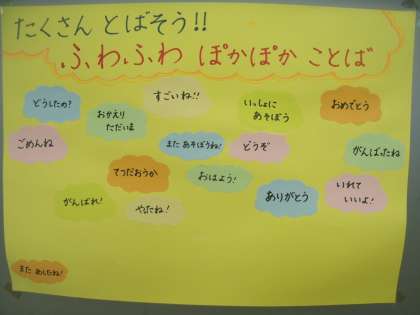 たくさん とばそう!!
ふわふわ ぽかぽか ことば
どうしたの?
おかえり
ただいま
すごいね!!
いっしょに
あそぼう
おめでとう
ごめんね
また あそぼうね!
どうぞ
がんばったね
てつだおうか
おはよう!
ありがとう
いれて
いいよ!
がんばれ!
やったね!
また あしたね!